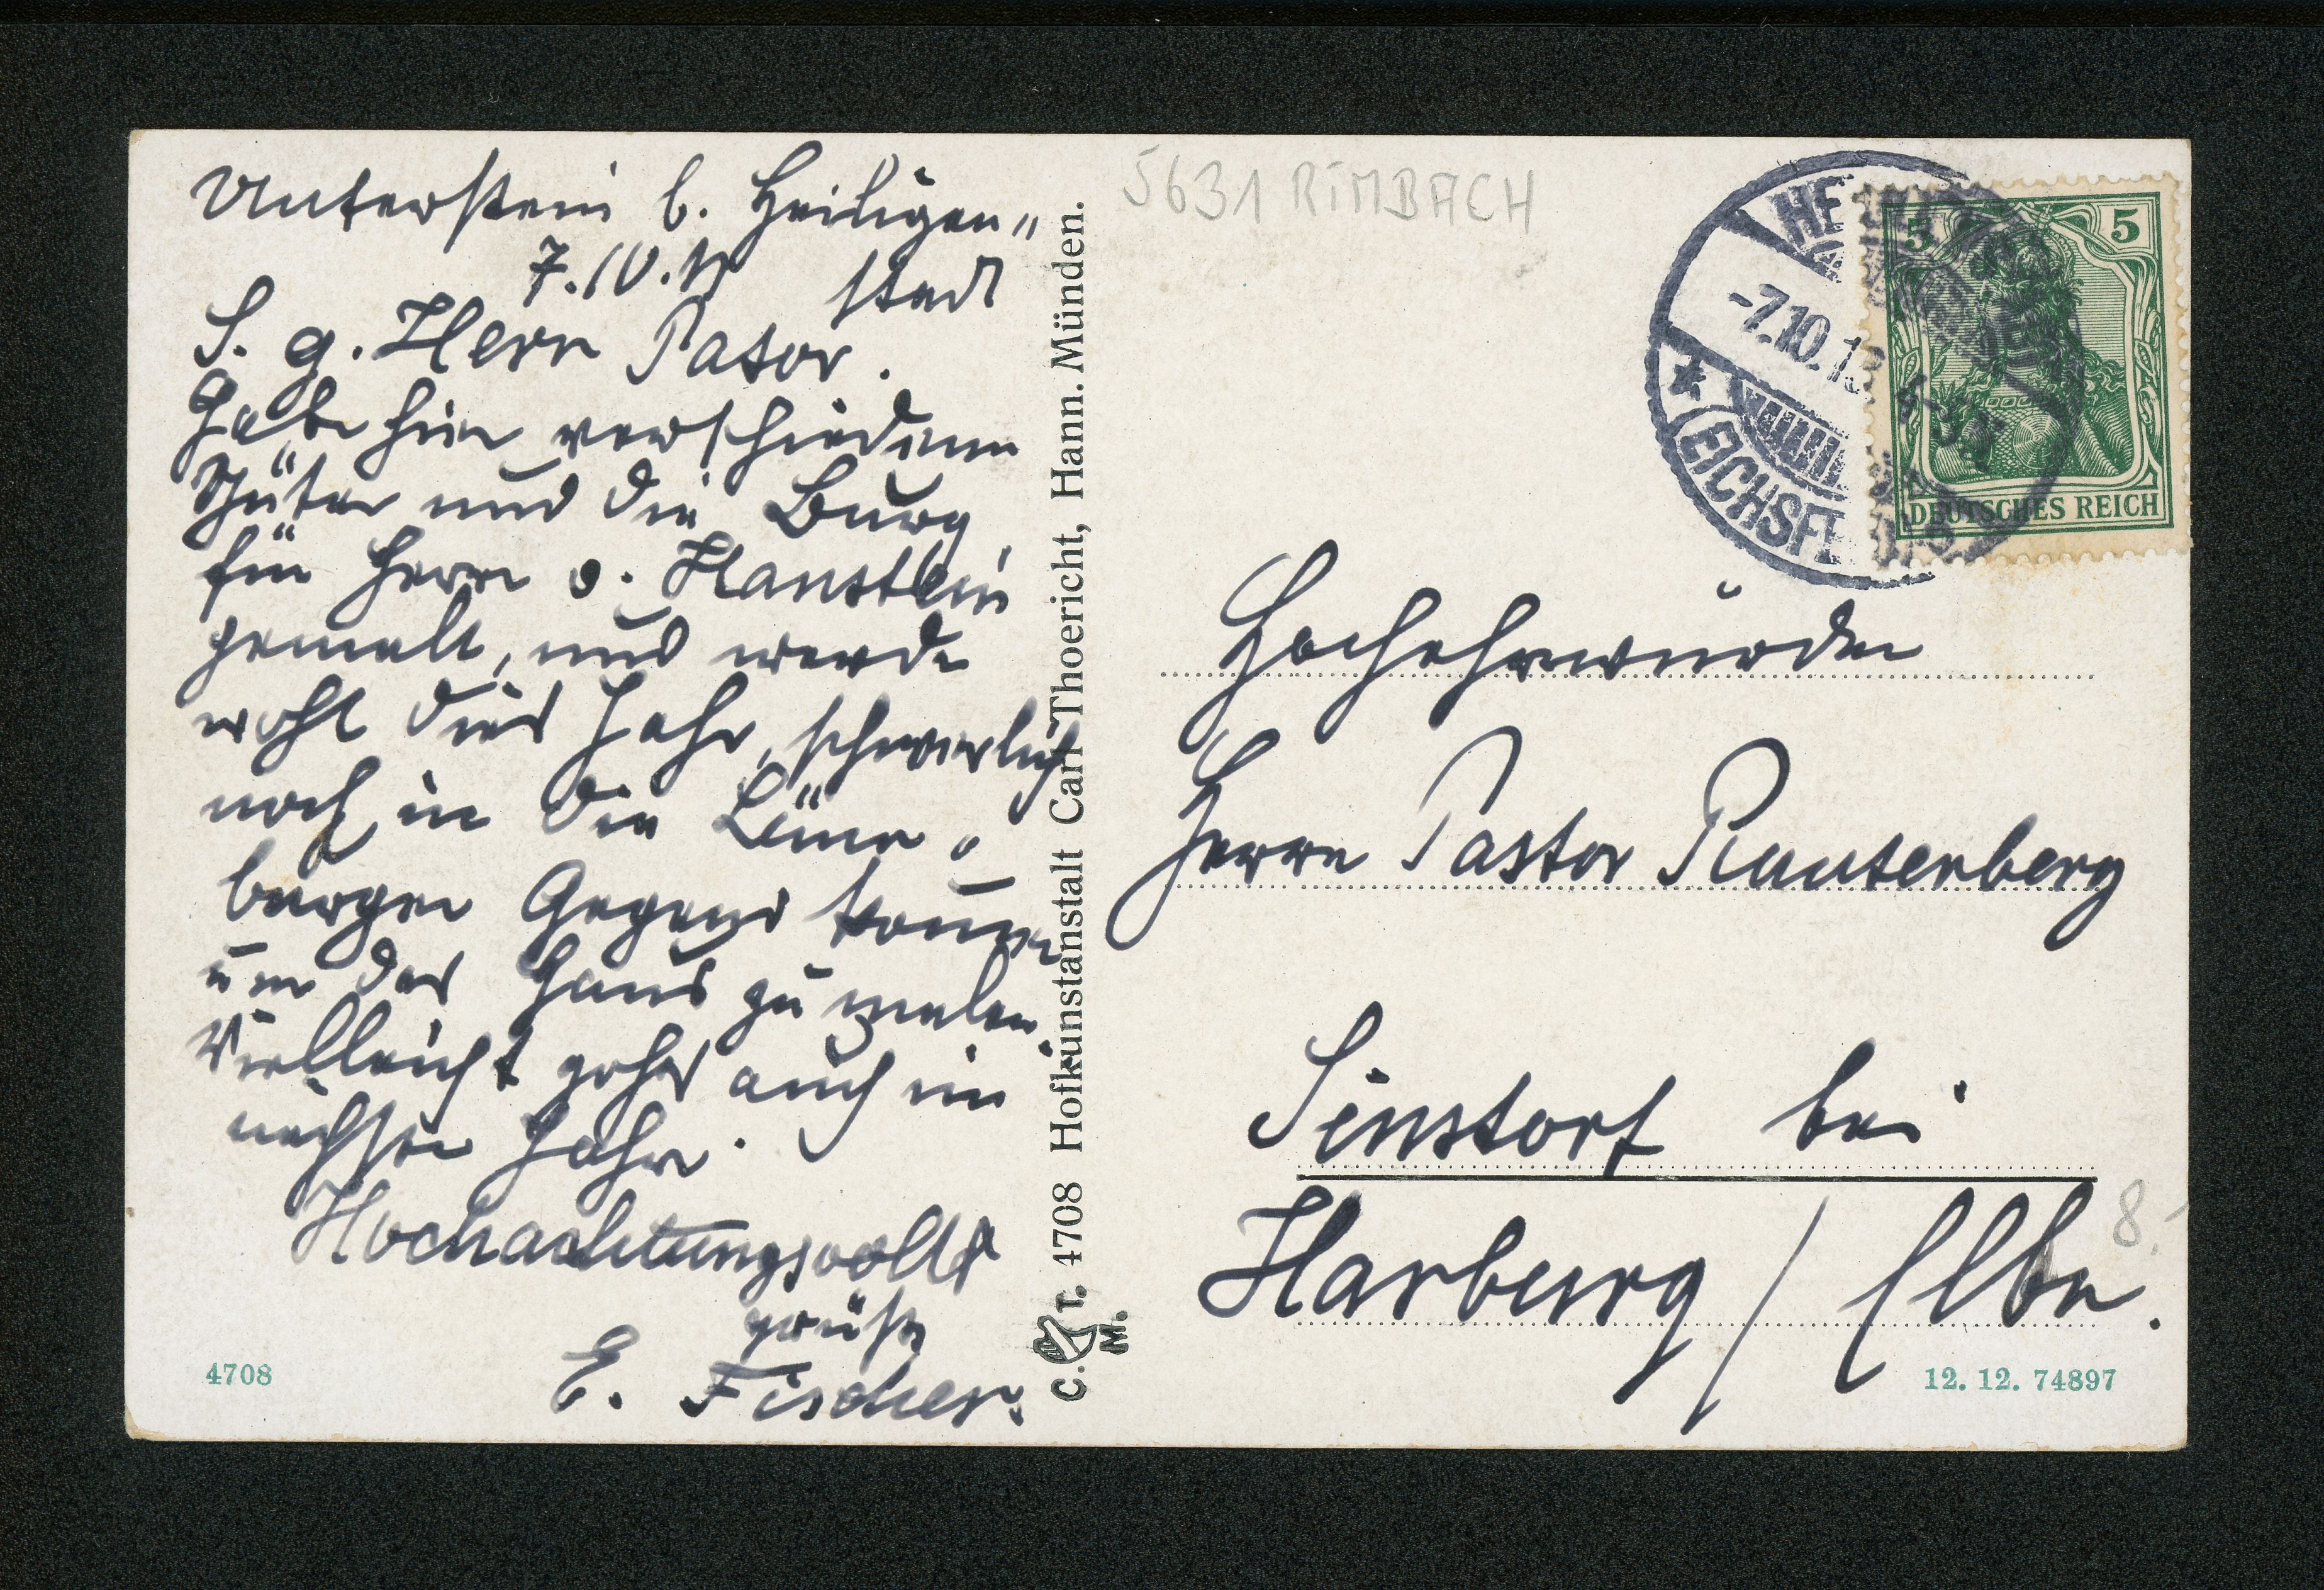 Unterstein b. Heiligen„
7.10.13 stadt
S. g. Herr Pastor.
Habe hier verschiedene
Güter und die Burg
für Herrn v. Hanstein
gemalt, und werde
wohl dies Jahr, schwerlich
noch in die Lüne„
burger Gegend kommen
um das Haus zu malen.
Vielleicht gehts auch im
nächsten Jahr.
Hochachtungsvollst
grüßt
E. Fischer.
4708
C. T. 4708 Hofkunstanstalt Carl Thoericht, Hann. Münden.
M.
5631 RIMBACH
-7.10.13
EICHSF
5 5
DEUTSCHES REICH
Hochehrwürden
Herrn Pastor Rautenberg
Sinstorf bei
Harburg / Elbe.
8.-
12. 12. 74897